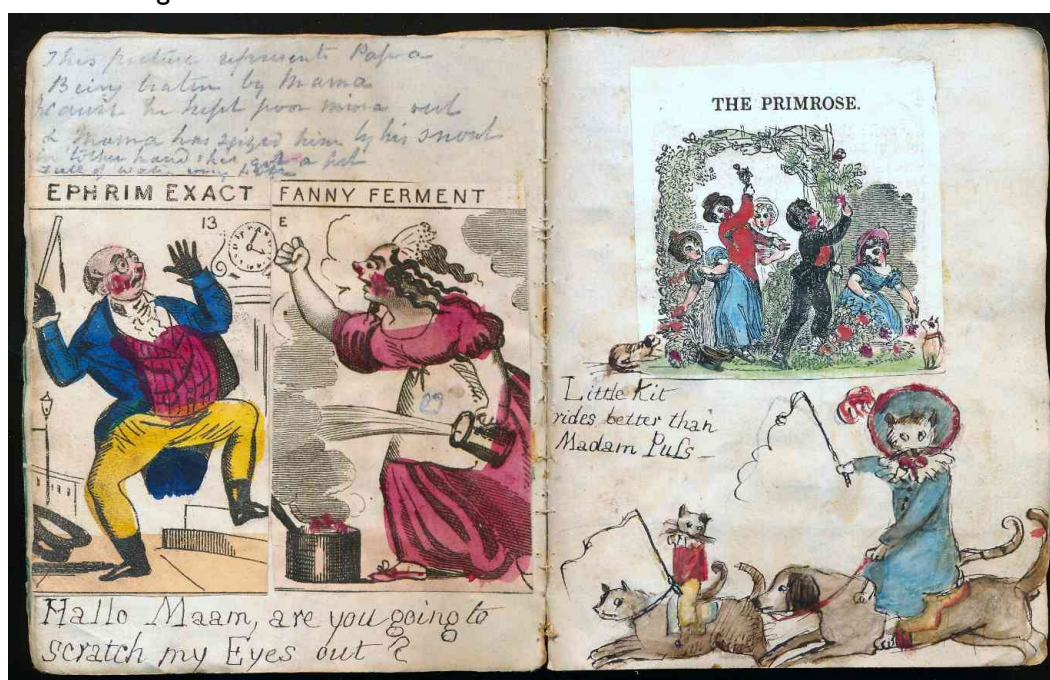 This picture represents Papa
Being beaten by Mama
he kept poor out
& Mama has seized him by his snout
hand she got a
full of water
EPHRIM EXACT
13
FANNY FERMENT
E
29
Hallo Maam, are you going to
scratch my Eyes out ?
THE PRIMROSE.
Little Kit
rides better than
Madam Puſs